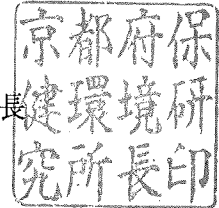 長
京都府保
健環境研
究所長印